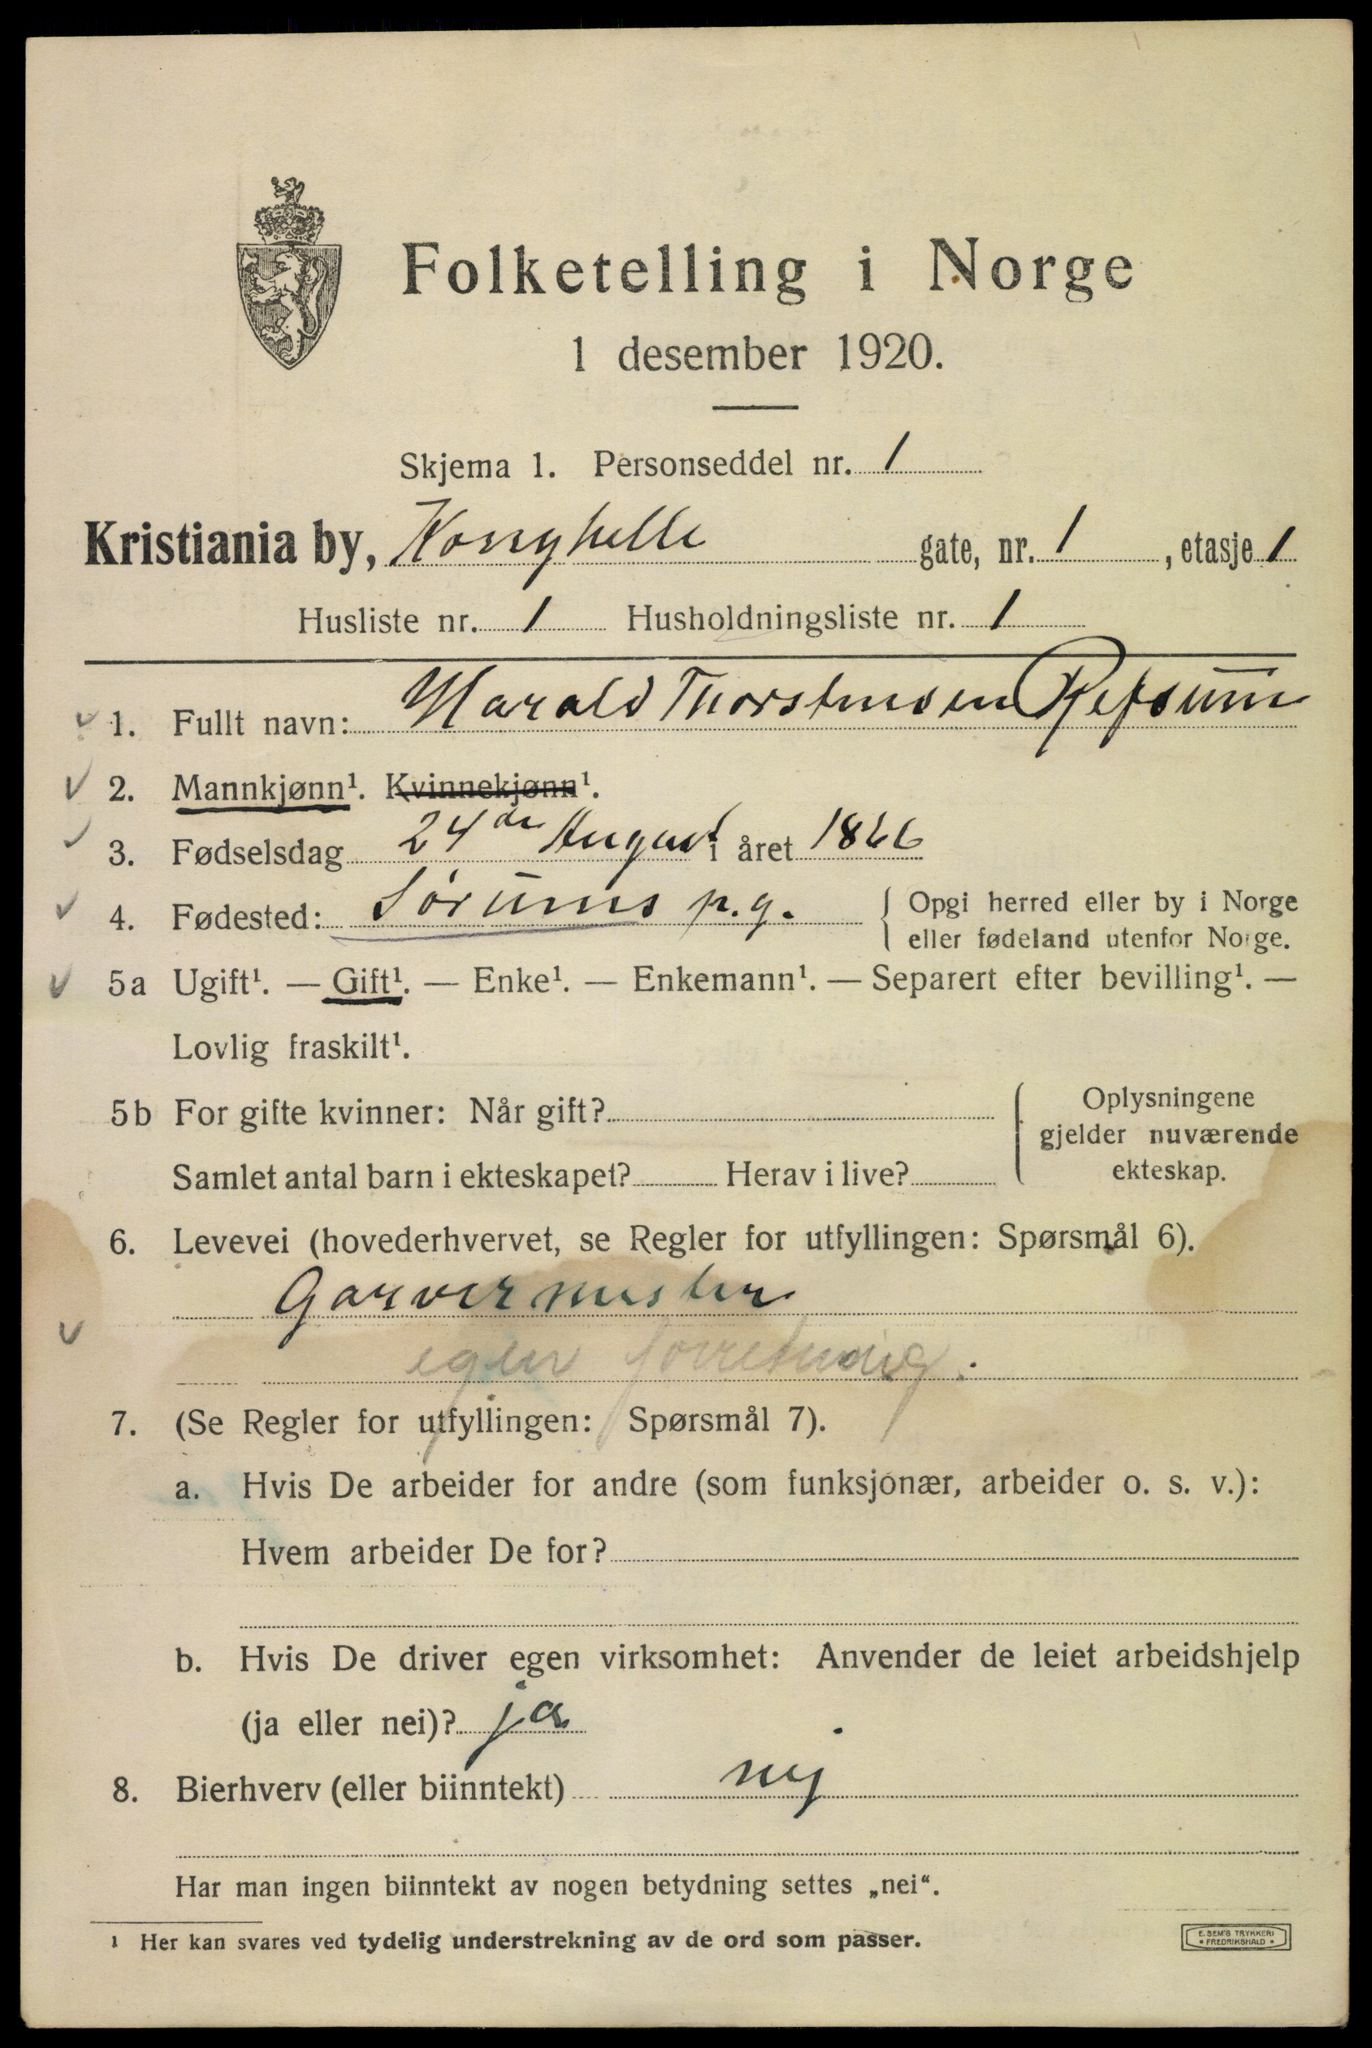 Folketelling i Norge
1 desember 1920.
Skjema 1. Personseddel nr. 1
Kristiania by, Konghelle gate, nr. 1, etasje 1
Husliste nr. 1 Husholdningsliste nr. 1
1. Fullt navn: Harald Thorstensen Refsum
2. Mannkjønn¹. Kvinnekjønn¹.
3. Fødselsdag 24de August i året 1866
4. Fødested: Sørums p.g. { Opgi herred eller by i Norge
eller fødeland utenfor Norge.
5a Ugift¹. — Gift¹. — Enke¹. — Enkemann¹. — Separert efter bevilling¹. —
Lovlig fraskilt¹.
5b For gifte kvinner: Når gift? { Oplysningene
gjelder nuværende
Samlet antal barn i ekteskapet? Herav i live? ekteskap.
6. Levevei (hovederhvervet, se Regler for utfyllingen: Spørsmål 6).
Garvermester
egen forretning.
7. (Se Regler for utfyllingen: Spørsmål 7).
a. Hvis De arbeider for andre (som funksjonær, arbeider o. s. v.):
Hvem arbeider De for?
b. Hvis De driver egen virksomhet: Anvender de leiet arbeidshjelp
(ja eller nei)? ja
8. Bierhverv (eller biinntekt) nej
Har man ingen biinntekt av nogen betydning settes „nei“.
¹ Her kan svares ved tydelig understrekning av de ord som passer.
E. SEM'S TRYKKERI
* FREDRIKSHALD *